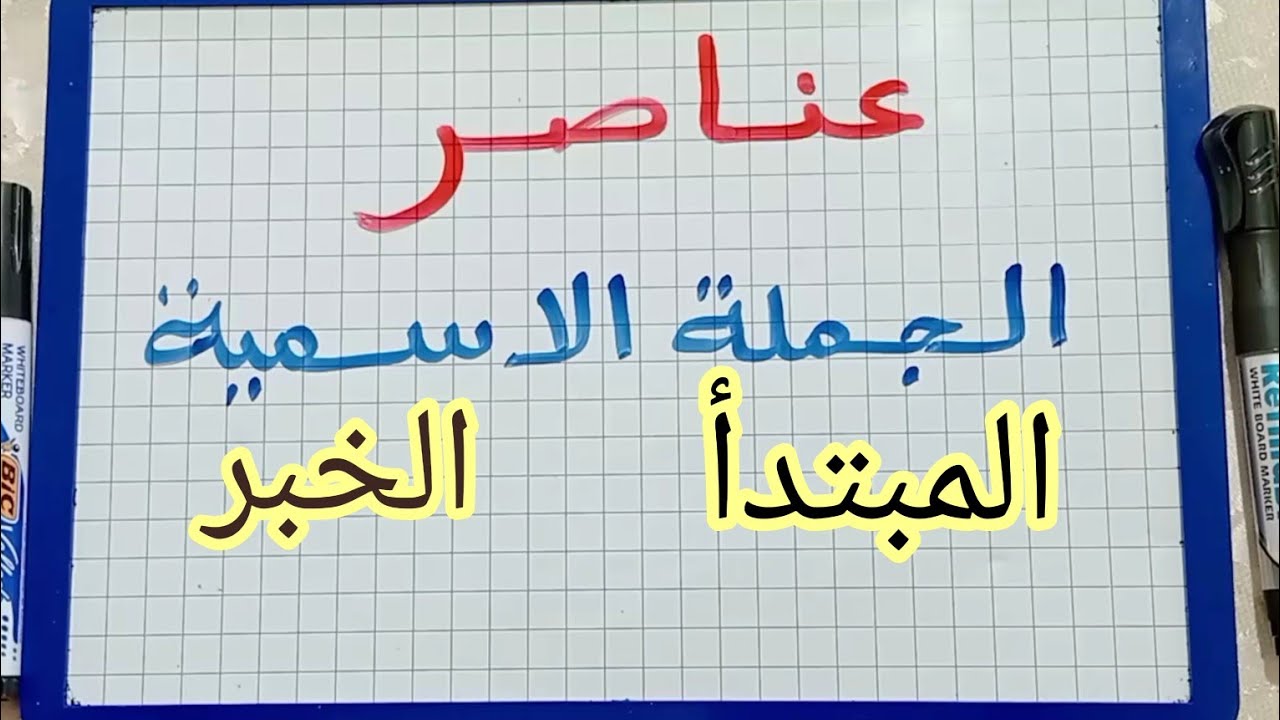 عناصر
الجملة الاسمية
المبتدأ الخبر
WHITEBOARD
MARKER
BIC
WHITE BOARD MARKER